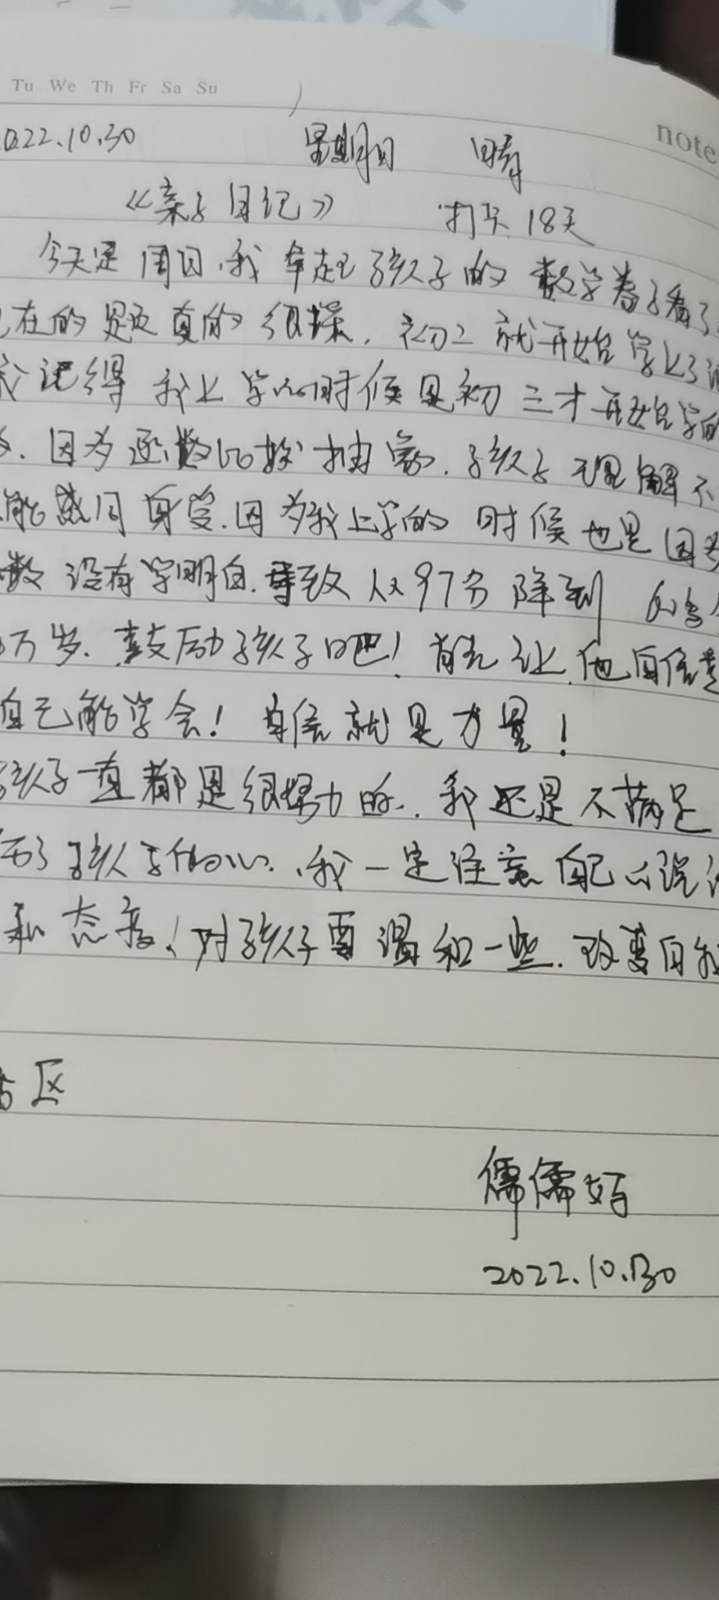 Tu We Th Fr Sa Su
note
2022.10.30 星期日 晴
《亲子日记》 打卡 18天
今天是周日,我拿起孩子的数学卷子看了
在的题真的很难,初二就开始学上了
记得我上学的时候是初三才开始学的
因为函数比较抽象,孩子理解不
能感同身受,因为我上学的时候也是因为
数没有学明白,导致从97分降到
万岁,鼓励孩子吧!首先让他自信
自己能学会!自信就是力量!
孩子一直都是很努力的,我还是不满足
了孩子的心,我一定注意自己的说
和态度,对孩子要温和一些,改变自我
区
儒儒妈
2022.10.30